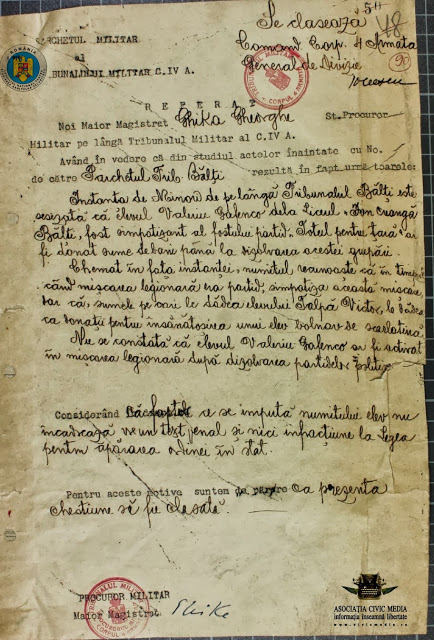 Se clasează
Comand. Corp. 4 Armata
General de Divizie
50
48
PARCHETUL MILITAR
al
TRIBUNALULUI MILITAR C.IV A.
R E F E R A T
Noi Maior Magistrat Ghika Gheorghe St.Procuror
Militar pe lângă Tribunalul Militar al C.IV A.
Având în vedere că din studiul actelor înaintate cu No.
de către Parchetul Trib. Bălți rezultă în fapt urmă toarele:
Instanta de Minori de pe lângă Tribunalul Bălți este
sesizată că elevul Valeriu Gafencu dela Liceul „Ion Creangă
Bălți, fost simpatizant al fostului partid „Totul pentru țară" ar
fi donat sume de bani până la dizolvarea acestei grupări.
Chemat în fața instanței, numitul recunoaște că în timpul
când mișcarea legionară era partid, simpatiza această mișcare
dar că, sumele pe cari le dădea elevului Talpă Victor, le dădea
ca donații pentru însănătoșirea unui elev bolnav de scarlatină
Nu se constată că elevul Valeriu Gafencu ar fi activat
în mișcarea legionară după dizolvarea partidelor politice
Considerând că faptele ce se impută numitului elev nu
incadrează vre un text penal și nici infracțiune la Legea
pentru apărarea ordinei în stat.
Pentru aceste motive suntem de părere ca prezenta
chestiune să fie clasată.
PROCUROR MILITAR
Maior Magistrat Ghika
ASOCIAȚIA CIVIC MEDIA
informația înseamnă libertate
www.civicmedia.ro